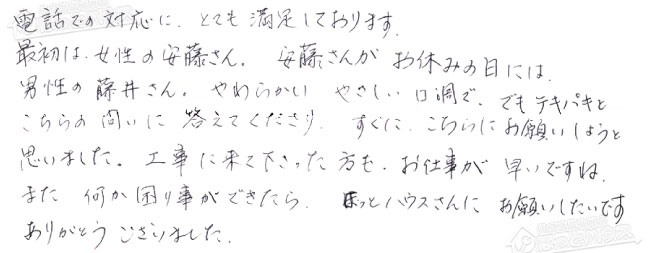 電話での対応に、とても満足しております。
最初は、女性の安藤さん。安藤さんがお休みの日には、
男性の藤井さん。やわらかい やさしい口調で、でもテキパキと
こちらの問いに 答えてくださり、すぐに、こちらにお願いしようと
思いました。工事に来て下さった方も、お仕事が 早いですね、
また 何か困り事ができたら、ほっとハウスさんに お願いしたいです
ありがとう ございました。